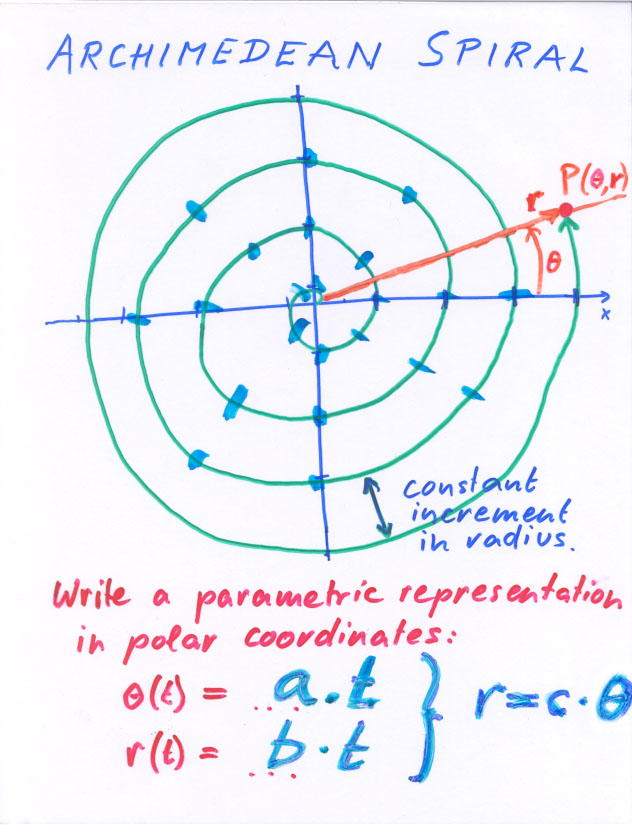 ARCHIMEDEAN SPIRAL
P(θ,r)
r
θ
x
constant
increment
in radius.
Write a parametric representation
in polar coordinates:
θ(t) = a.t
r(t) = b·t
r=c·θ